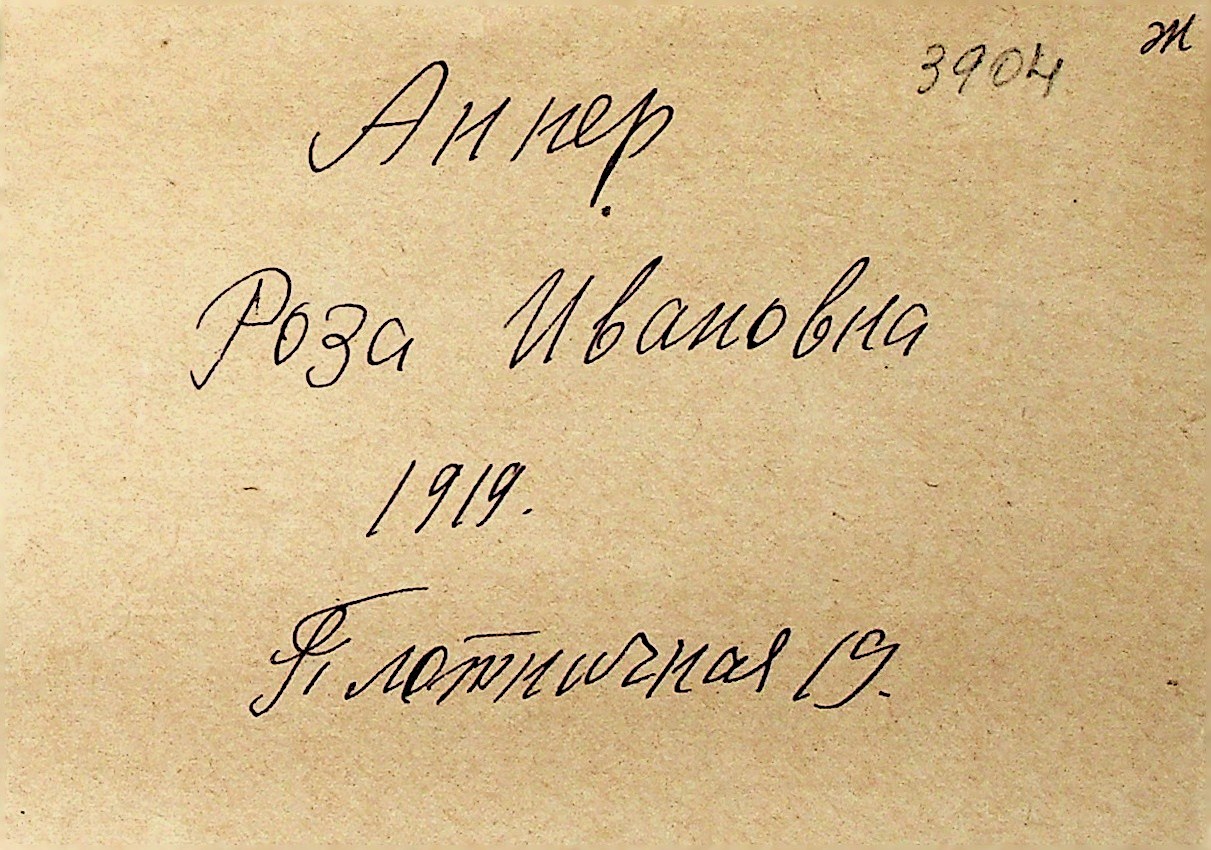 3904 ж
Аннер
Роза Ивановна
1919.
Плотничная 19.